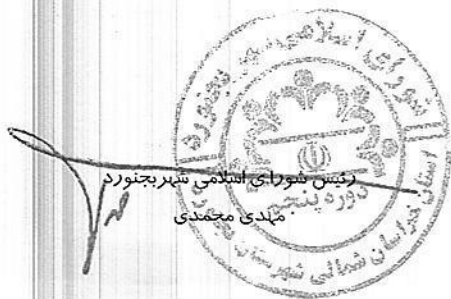 شورای اسلامی شهر بجنورد
دوره پنجم
استان خراسان شمالی شهرستان بجنورد
رئیس شورای اسلامی شهر بجنورد
مهدی محمدی